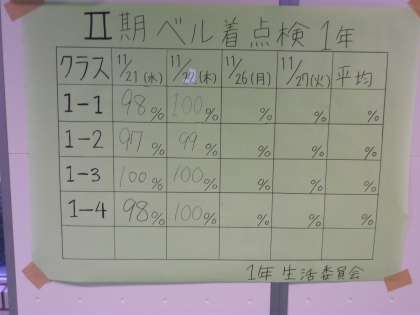 Ⅱ期ベル着点検 1年
クラス 11/21(水) 11/22(木) 11/26(月) 11/27(火) 平均
1-1 98% 100% % % %
1-2 97% 99% % % %
1-3 100% 100% % % %
1-4 98% 100% % % %
1年 生活委員会